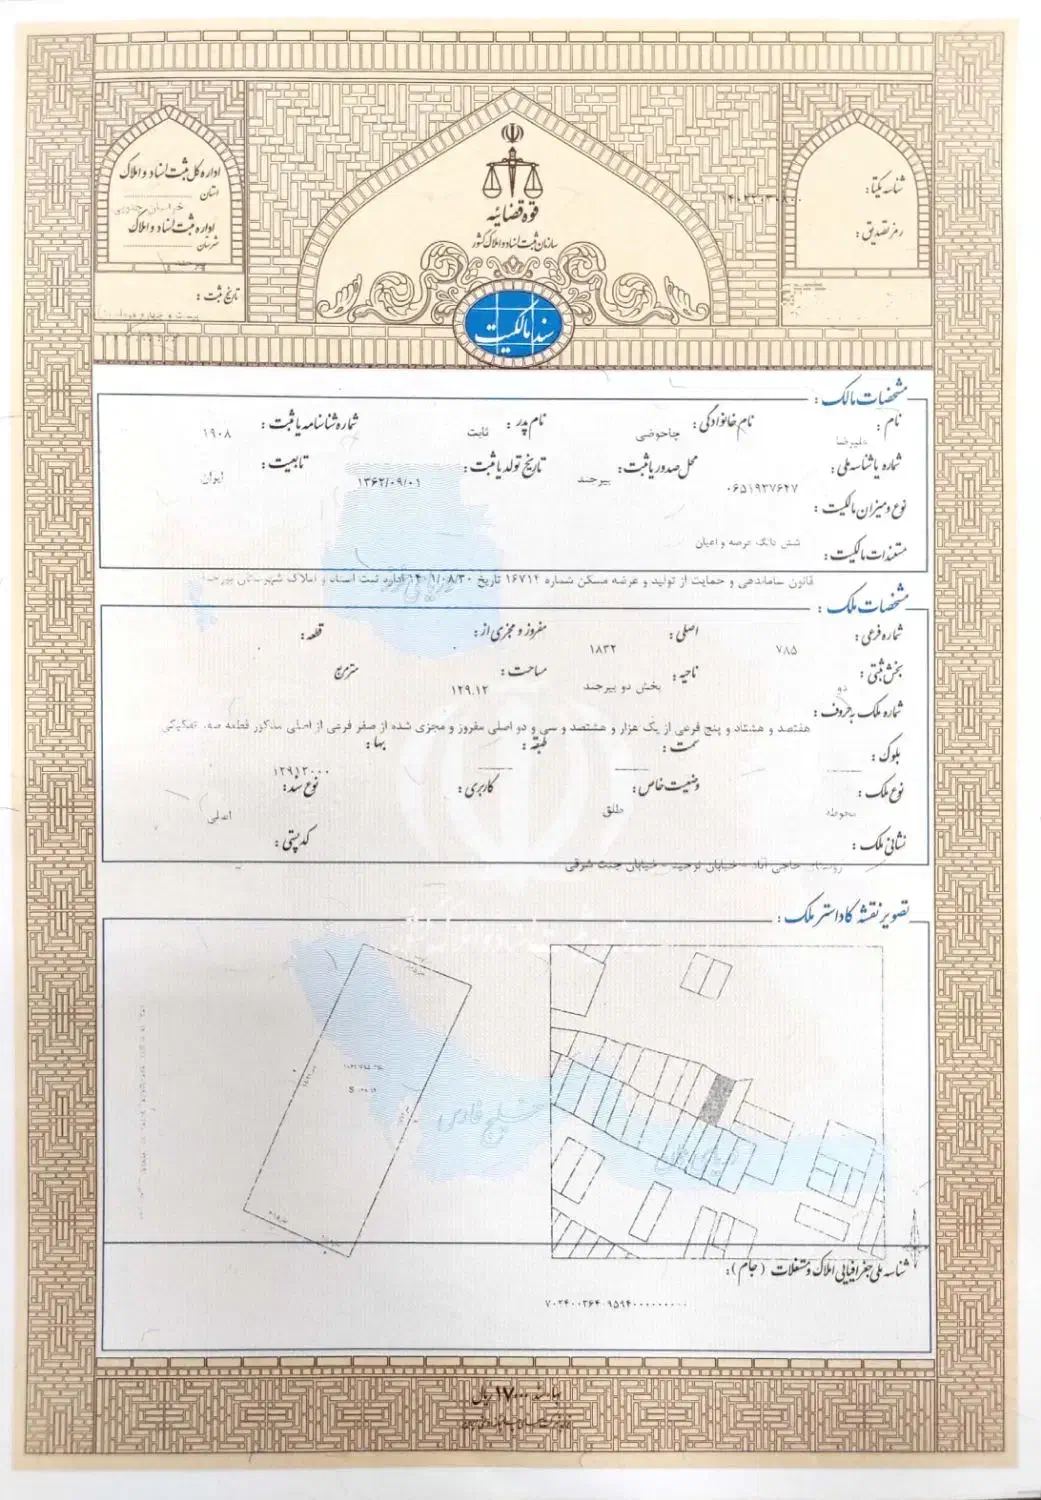 قوه قضائیه
سازمان ثبت اسناد و املاک کشور
سند مالکیت
شناسه یکتا:
رمز تصدیق:
اداره کل ثبت اسناد و املاک
استان
خراسان جنوبی
اداره ثبت اسناد و املاک
شهرستان
تاریخ ثبت:
مشخصات مالک:
نام: علیرضا نام خانوادگی: چاحوضی نام پدر: ثابت شماره شناسنامه یا ثبت: ۱۹۰۸
شماره یا شناسه ملی: ۰۶۵۱۹۳۷۶۴۷ محل صدور یا ثبت: بیرجند تاریخ تولد یا ثبت: ۱۳۶۲/۰۹/۰۱ تابعیت: ایران
نوع و میزان مالکیت: شش دانگ عرصه و اعیان
مستندات مالکیت:
قانون ساماندهی و حمایت از تولید و عرضه مسکن شماره ۱۶۷۱۴ تاریخ ۱۴۰۱/۰۸/۳۰ اداره ثبت اسناد و املاک شهرستان بیرجند
مشخصات ملک:
شماره فرعی: ۷۸۵ اصلی: ۱۸۳۲ مفروز و مجزی از: قطعه:
بخش ثبتی: دو ناحیه: بخش دو بیرجند مساحت: ۱۲۹.۱۲ متر مربع
شماره ملک به حروف:
هفتصد و هشتاد و پنج فرعی از یک هزار و هشتصد و سی و دو اصلی مفروز و مجزی شده از صفر فرعی از اصلی مذکور قطعه صفر تفکیکی
بلوک: سمت: طبقه: بها: ۱۲۹۱۲۰۰۰
نوع ملک: محوطه وضعیت خاص: طلق کاربری: نوع سند: اصلی
نشانی ملک: کدپستی:
روستای حاجی آباد - خیابان توحید - خیابان جنت شرقی
تصویر نقشه کاداستر ملک:
خلیج فارس
دریای عمان
شناسه ملی جغرافیایی املاک و مستغلات (جام):
بهاء سند ۱۷۰۰۰ ریال